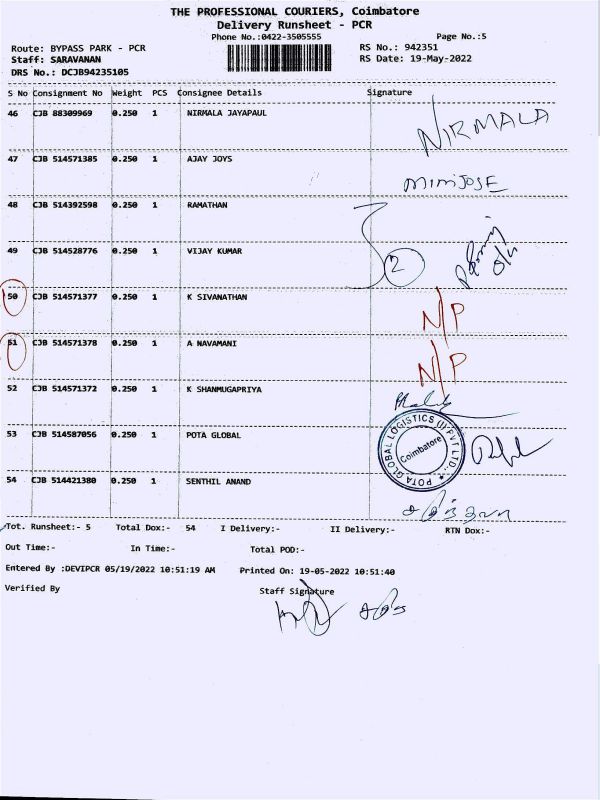 THE PROFESSIONAL COURIERS, Coimbatore
Delivery Runsheet - PCR
Phone No.:0422-3505555
Page No.:5
Route: BYPASS PARK - PCR
RS No.: 942351
Staff: SARAVANAN
RS Date: 19-May-2022
DRS No.: DCJB94235105
S No Consignment No Weight PCS Consignee Details Signature
46 CJB 88309969 0.250 1 NIRMALA JAYAPAUL
NIRMALA
47 CJB 514571385 0.250 1 AJAY JOYS
MINIJOSE
48 CJB 514392598 0.250 1 RAMATHAN
49 CJB 514528776 0.250 1 VIJAY KUMAR
2
50 CJB 514571377 0.250 1 K SIVANATHAN
N/P
51 CJB 514571378 0.250 1 A NAVAMANI
N/P
52 CJB 514571372 0.250 1 K SHANMUGAPRIYA
53 CJB 514587056 0.250 1 POTA GLOBAL
POTA GLOBAL LOGISTICS (I) PVT LTD.
Coimbatore
54 CJB 514421380 0.250 1 SENTHIL ANAND
Tot. Runsheet:- 5 Total Dox:- 54 I Delivery:- II Delivery:- RTN Dox:-
Out Time:- In Time:- Total POD:-
Entered By :DEVIPCR 05/19/2022 10:51:19 AM Printed On: 19-05-2022 10:51:40
Verified By Staff Signature